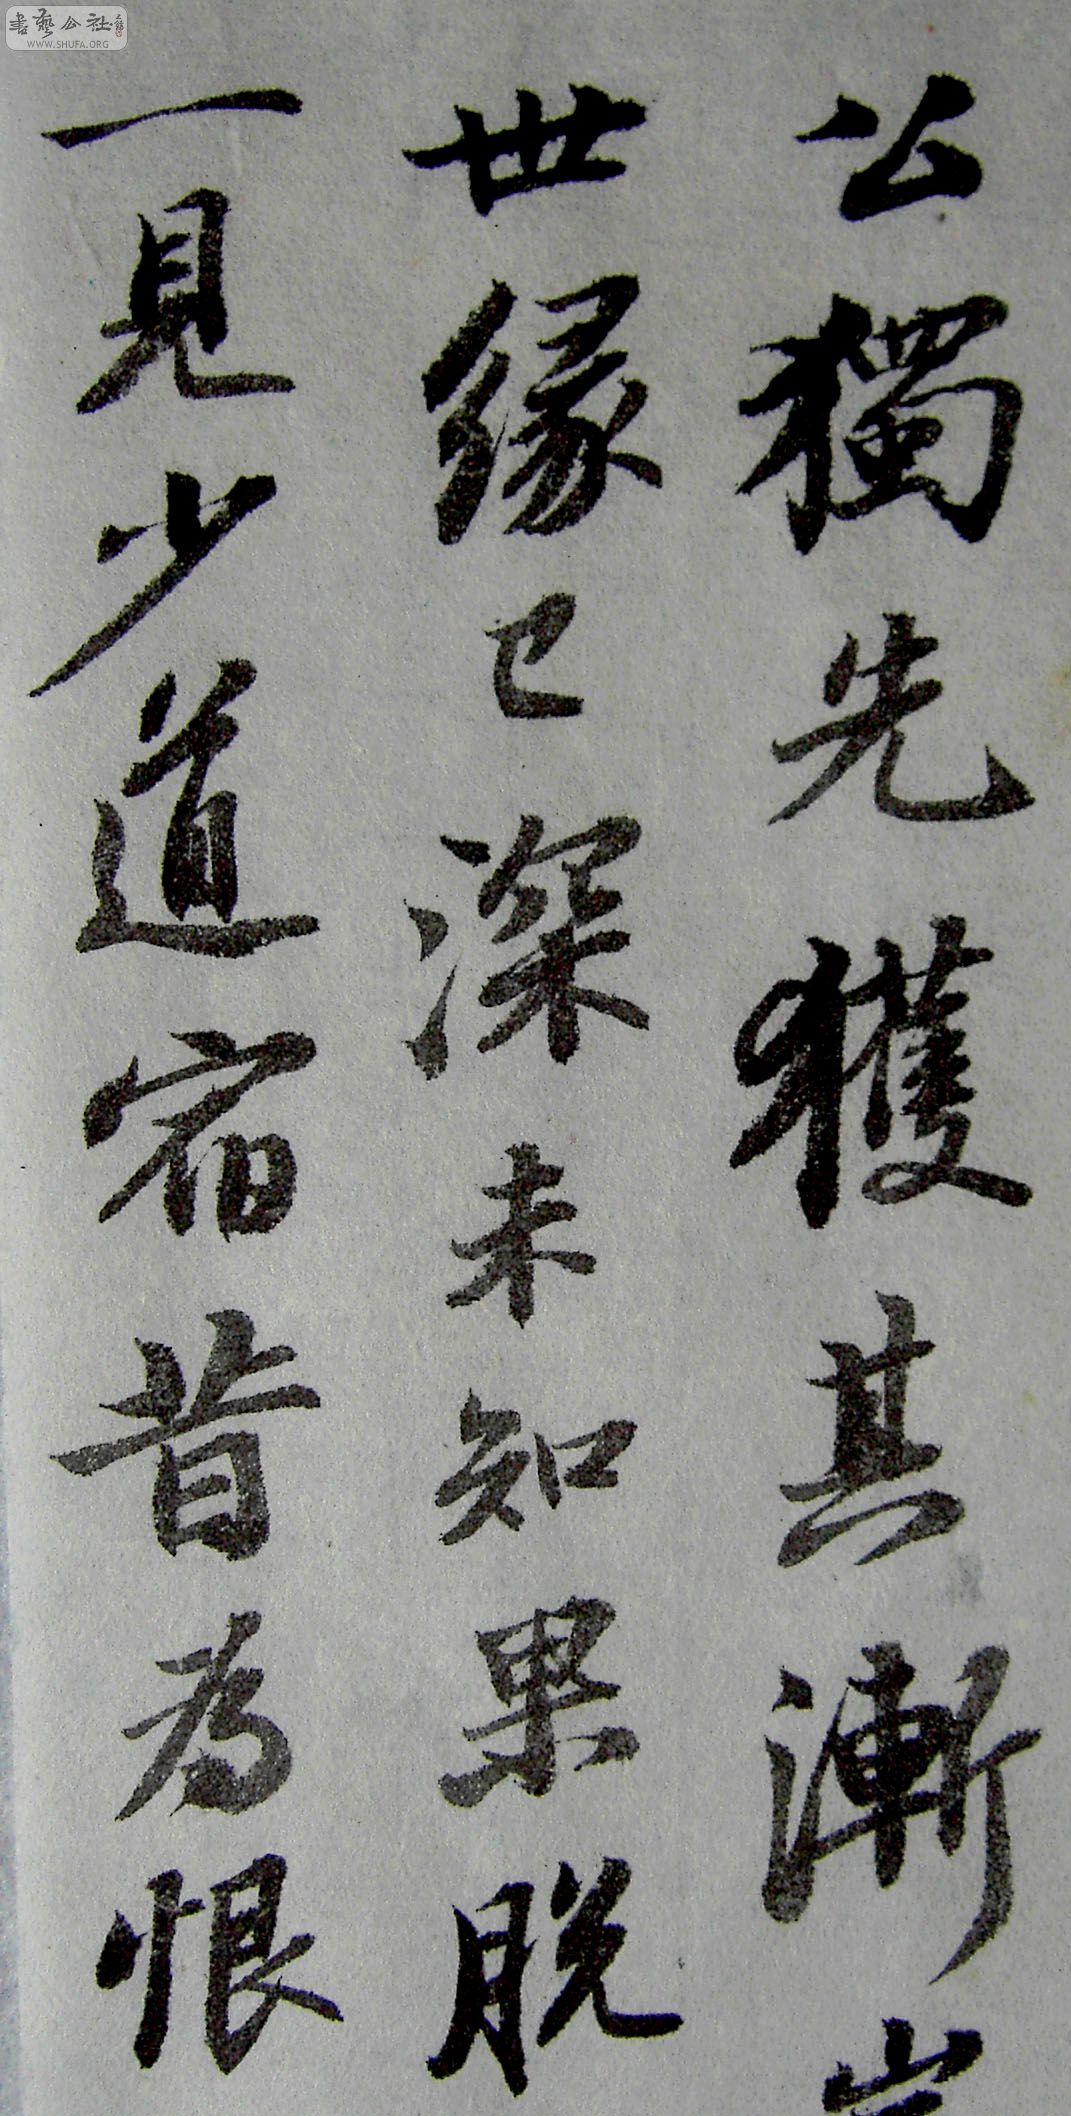 公獨先獲其漸
世緣已深未知果脱
一見少道宿昔為恨
書藝公社
WWW.SHUFA.ORG